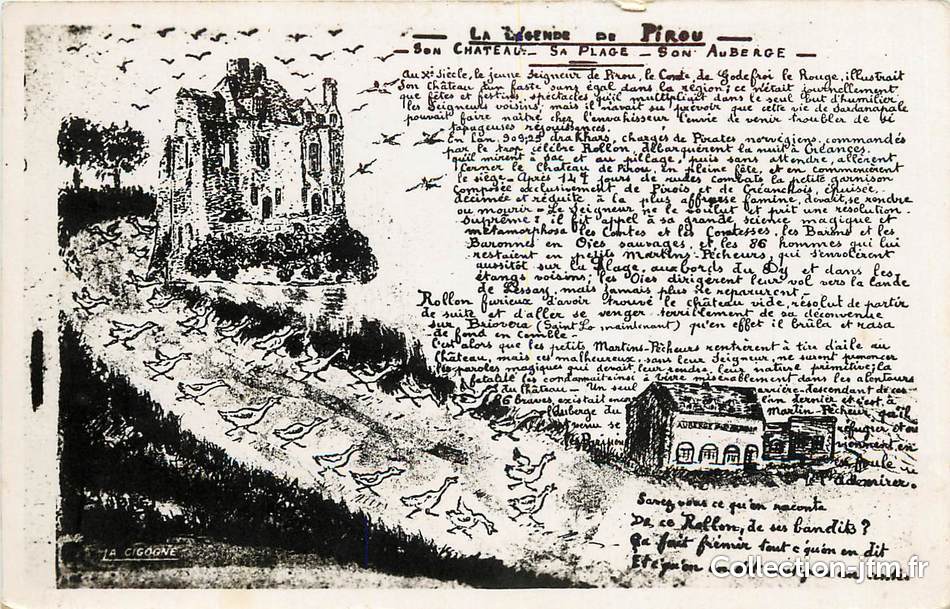 LA LÉGENDE DE PIROU
SON CHATEAU – SA PLAGE – SON AUBERGE
Au Xe Siècle, le jeune Seigneur de Pirou, le Comte de Godefroi le Rouge, illustrait
Son château d'un faste sans égal dans la région; ce n'était journellement
que fêtes et festins, spectacles qu'il multipliait dans le seul but d'humilier
les Seigneurs voisins, mais ignorait au surplus que cette vie de Sardanapale
pouvait faire naître chez l'envahisseur l'envie de venir troubler de si
tapageuses réjouissances.
En l'an 909, 25 drakkars, chargés de Pirates norvégiens, commandés
par le trop célèbre Rollon, débarquèrent la nuit à Créances,
qu'il mirent à sac et au pillage, puis sans attendre, allèrent
cerner le château de Pirou, en pleine fête, et en commencèrent
le siège. Après 14 jours de rudes combats la petite garnison
Composée exclusivement de Pirois et de Créançhois, épuisée,
décimée et réduite à la plus affreuse famine, devait se rendre
ou mourir. Le Seigneur ne le voulut et prit une résolution
Suprême: il fit appel à sa grande science magique et
métamorphosa les Comtes et les Comtesses, les Barons et les
Baronnes en Oies sauvages, et les 86 hommes qui lui
restaient en petits Martins-Pêcheurs, qui s'envolèrent
aussitôt sur la plage, aux bords du Dy et dans les
étangs voisins; les Oies dirigèrent leur vol vers la lande
de Lessay, mais jamais plus ne reparurent.
Rollon furieux d'avoir trouvé le château vide, résolut de partir
de suite et d'aller se venger terriblement de sa déconvenue
sur Briovera (Saint Lo maintenant) qu'en effet il brûla et rasa
de fond en comble.
C'est alors que les petits Martins-Pêcheurs rentrèrent à tire d'aile au
Château, mais ces malheureux, sans leur Seigneur, ne surent prononcer
les paroles magiques qui devait leur rendre leur nature primitive; la
fatalité les condamnait ainsi à vivre misérablement dans les alentours
du Château – Un seul arrière-descendant de ces
86 braves, existait encore l'an dernier et c'est à
l'Auberge du Martin-Pêcheur, qu'il
venu se réfugier et où
les Parisiens viennent en
foule
l'admirer.
AUBERGE
Savez vous ce qu'on raconte
De ce Rollon, de ses bandits?
Ça fait frémir tout c'qu'on en dit
Et c'qu'on en
LA CIGOGNE
Collection-jfm.fr